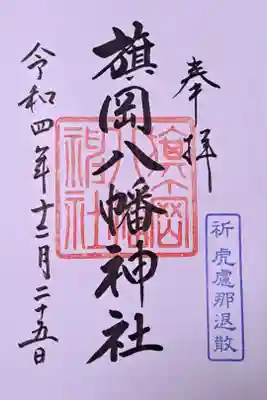 奉拝
祈 虎慮那退散
旗岡八幡神社
旗岡
八幡
神社
令和四年十二月二十五日